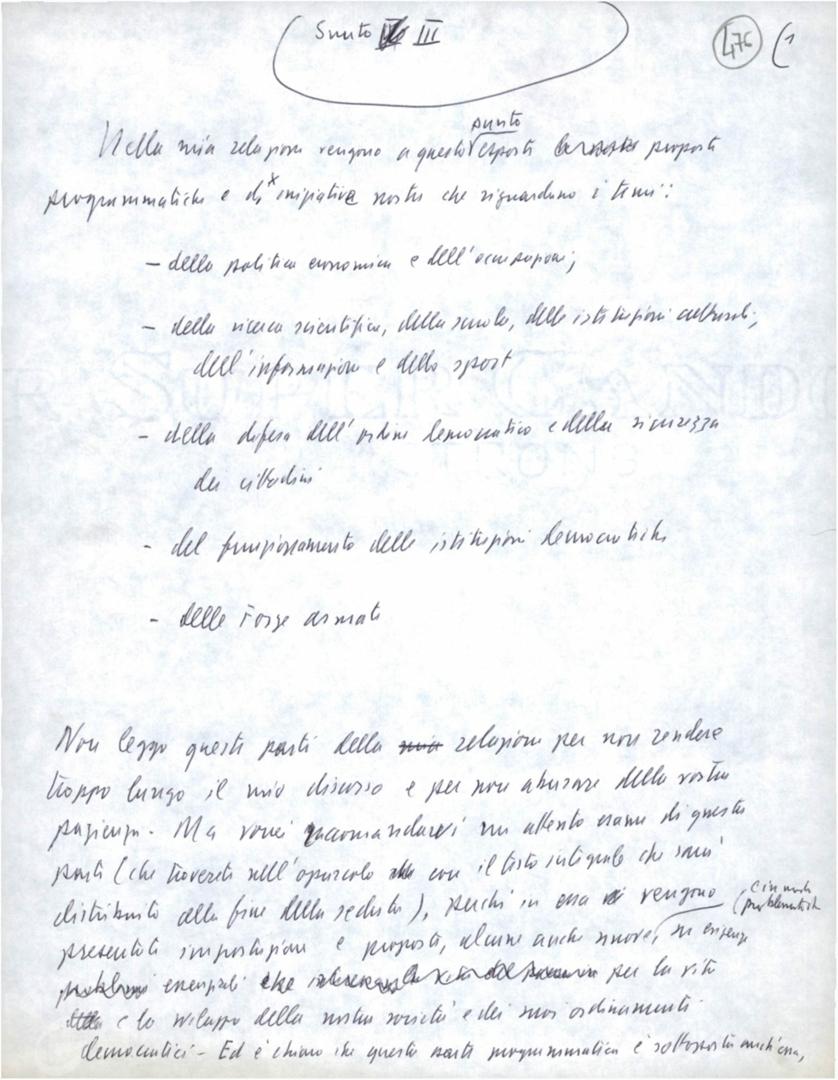 Sunto III
476 (1
Nella mia relazione vengono a questo punto esposti proposte
programmatiche e di iniziativa nostra che riguardano i temi:
– della politica economica e dell'occupazione;
– della ricerca scientifica, della scuola, delle istituzioni culturali,
dell'informazione e dello sport
– della difesa dell'ordine democratico e della sicurezza
dei cittadini
– del funzionamento delle istituzioni democratiche
– delle Forze armate
Non leggo questa parte della mia relazione per non rendere
troppo lungo il mio discorso e per non abusare della vostra
pazienza. Ma vorrei raccomandarvi un attento esame di questa
parte (che troverete nell'opuscolo con il testo integrale che sarà
distribuito alla fine della seduta), perché in essa vengono
presentate impostazioni e proposte, alcune anche nuove, (in modo problematico) su esigenze
problemi essenziali per la vita
e lo sviluppo della nostra società e dei suoi ordinamenti
democratici – Ed è chiaro che questa parte programmatica è sottoposta anch'essa,